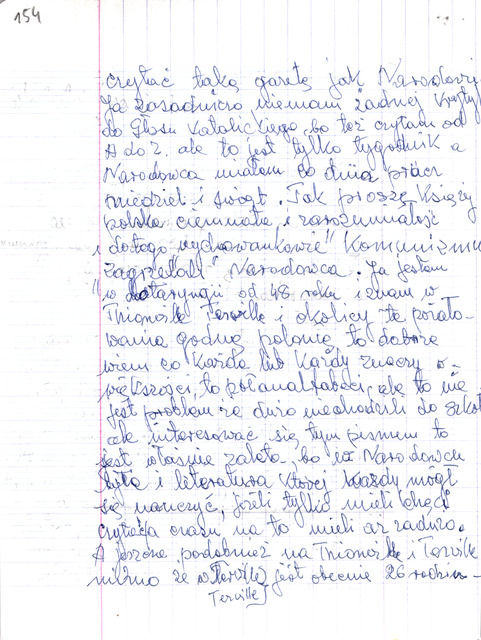 154
czytać taką gazetę jak Narodowi
Ja zasadniczo niemam żadnej Kryty
do Głosu Katolickiego, bo też czytam od
A do Z. ale to jest tylko tygodnik a
Narodowca miałem co dnia prócz
niedziel i świąt. Tak proszę Księży
polska ciemnota i zarozumiałość
i dotego "wychowankowie" Komunizmu
zagrzebali" Narodowca. Ja jestem
w Lotaryngii od 48 roku i znam w
Thionville Terville i okolicy tę pożało-
wania godną polonię, to dobrze
wiem co Każda lub Każdy znaczy w
większości, to półanalfabeci, ale to nie
jest problem że dużo niechodzili do szkoł
ale interesować się tym pismem to
jest właśnie zaleta, bo w Narodowcu
była i literatura z Ktorej Każdy mógł
się nauczyć, jeżli tylko mieli chęci
czytać a czasu na to mieli aż zadużo.
A proszę podobnież na Thionville i Terville
mimo że w Terville jest obecnie 26 rodzin –
Terville